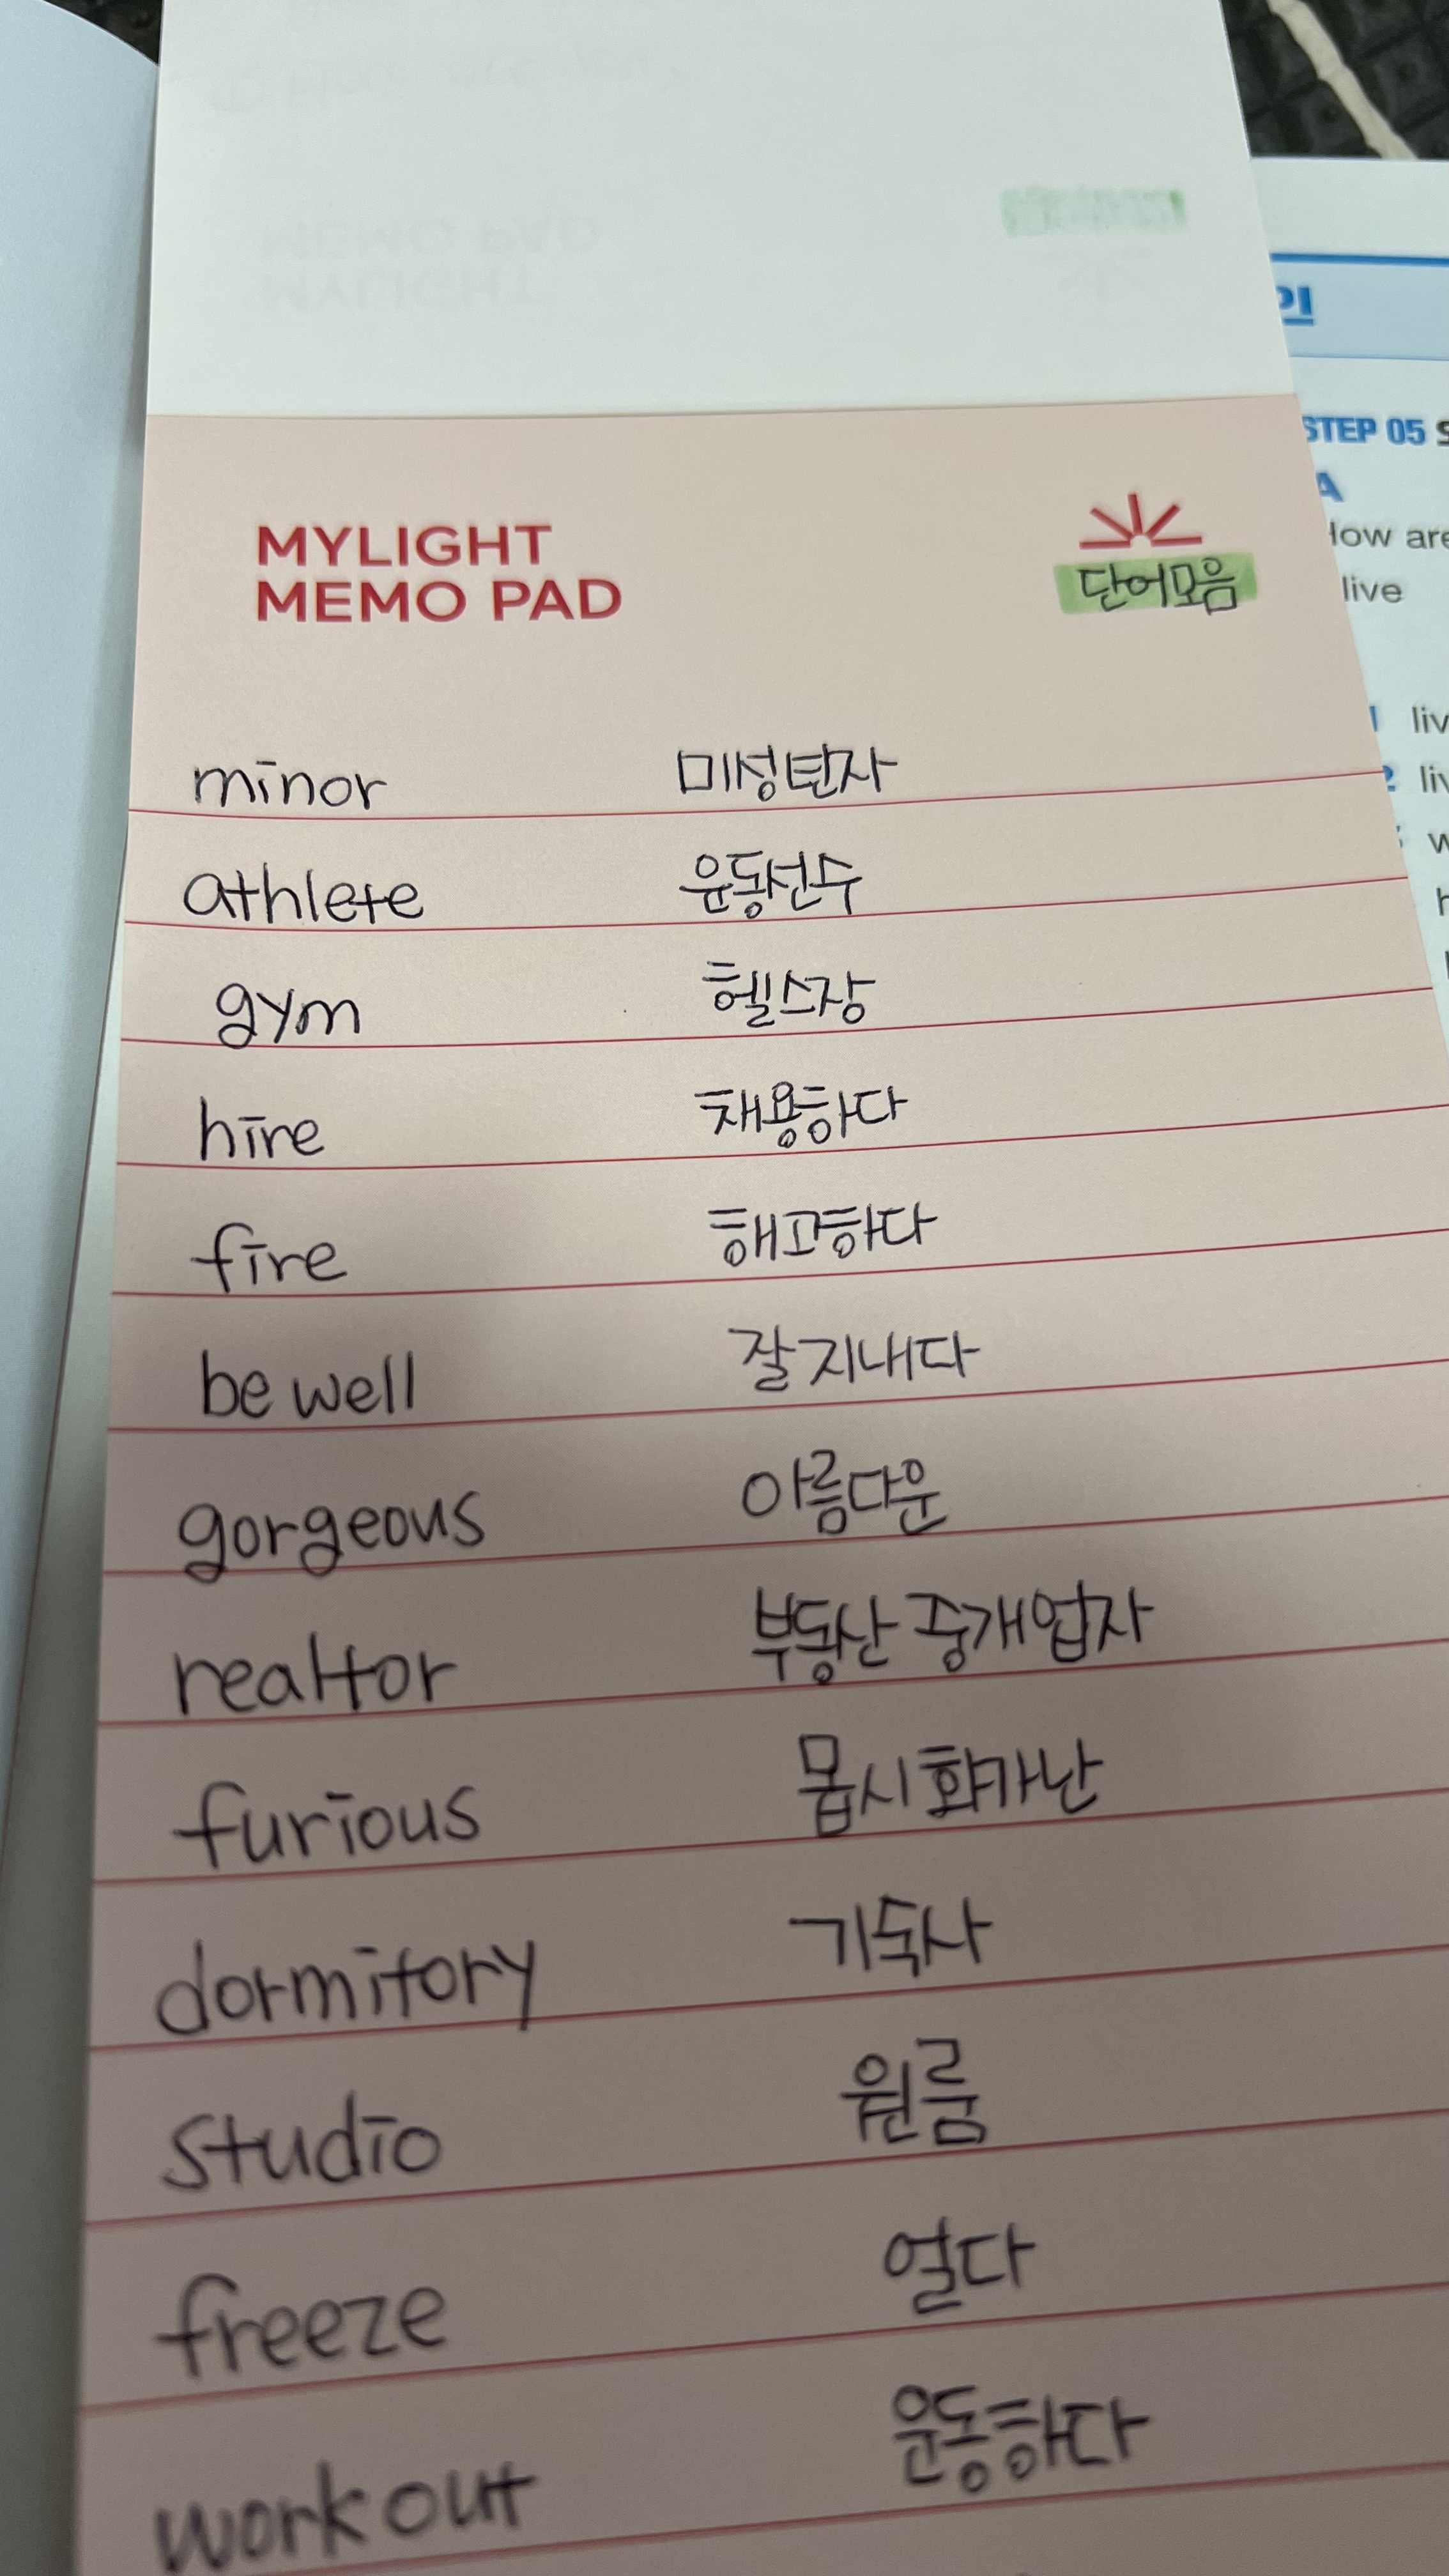 MYLIGHT
MEMO PAD
단어모음
minor 미성년자
athlete 운동선수
gym 헬스장
hire 채용하다
fire 해고하다
be well 잘지내다
gorgeous 아름다운
realtor 부동산 중개업자
furious 몹시 화가난
dormitory 기숙사
studio 원룸
freeze 얼다
work out 운동하다
STEP 05
A
How are
live
1 liv
2 liv